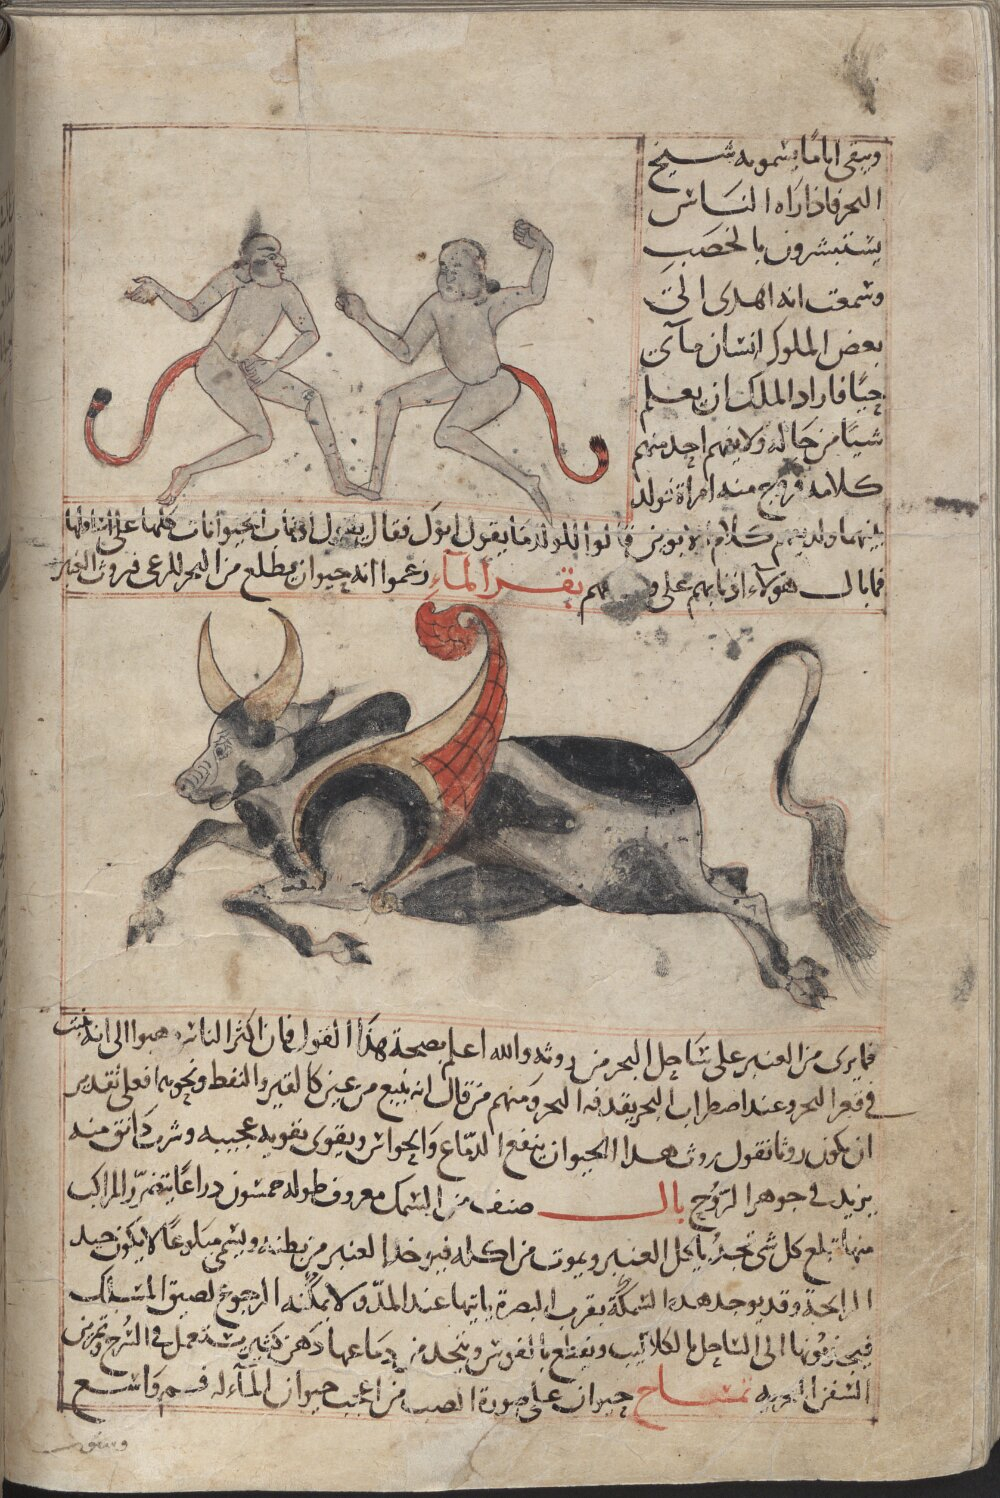 ويبقى اياما يسمونه شيخ
البحر فاذا راه الناس
يستبشرون بالخصب
وسمعت انه اهدى الى
بعض الملوك انسان مآئي
حيا فاراد الملك ان يعلم
شيا من حاله ولا يفهم احد منهم
كلامه فزوج منه امراة فولد
بينهما ولد يفهم كلام الابوين قالوا للولد ما يقول ابوك فقال يقول اذناب الحيوانات كلها على اسافلها
فما بال هولاء اذنابهم على وجوههم بقر المآء زعموا انه حيوان يطلع من البحر للرعي فيروث العنبر
فما يرى من العنبر على ساحل البحر من روثه والله اعلم بصحة هذا القول فان اكثر الناس ذهبوا الى انه ينبت
في قعر البحر وعند اضطراب البحر يقذفه البحر ومنهم من قال انه ينبع من عين كالقير والنفط ونحوهما فعلى تقدير
ان يكون روثا نقول روث هذا الحيوان ينفع الدماغ والحواس ويقوى تقوية عجيبة وشرب دانق منه
يزيد في جوهر الروح بال صنف من السمك معروف طوله خمسون ذراعا يتضرر المراكب
منها تبلع كل شي تجد ياكل العنبر ويموت من اكله فيوخذ العنبر من بطنه ويسمى مبلوعا لا يكون جيد
الرايحة وقد يوجد هذه السمكة بقرب البصرة ياتيها عند المد ولا يمكنه الرجوع لضيق المسلك
فيجذبونها الى الساحل بالكلاليب ويقطع بالفوس ويتخذ من دماغها دهن كثير يستعمل في السرج وتمرين
السفن البحرية تمساح حيوان على صورة الضب من اعجب حيوان المآء له فم واسع
وستون